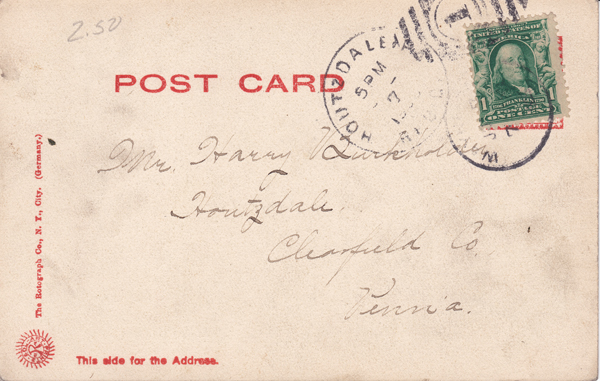 2.50
HOUTZDALE
5 PM
7
UNITED STATES OF
AMERICA
1 FRANKLIN 1
POSTAGE
ONE CENT
POST CARD
Mr. Harry Burkholder
Houtzdale.
Clearfield Co.
Penn'a.
The Rotograph Co., N. Y., City. (Germany.)
This side for the Address.